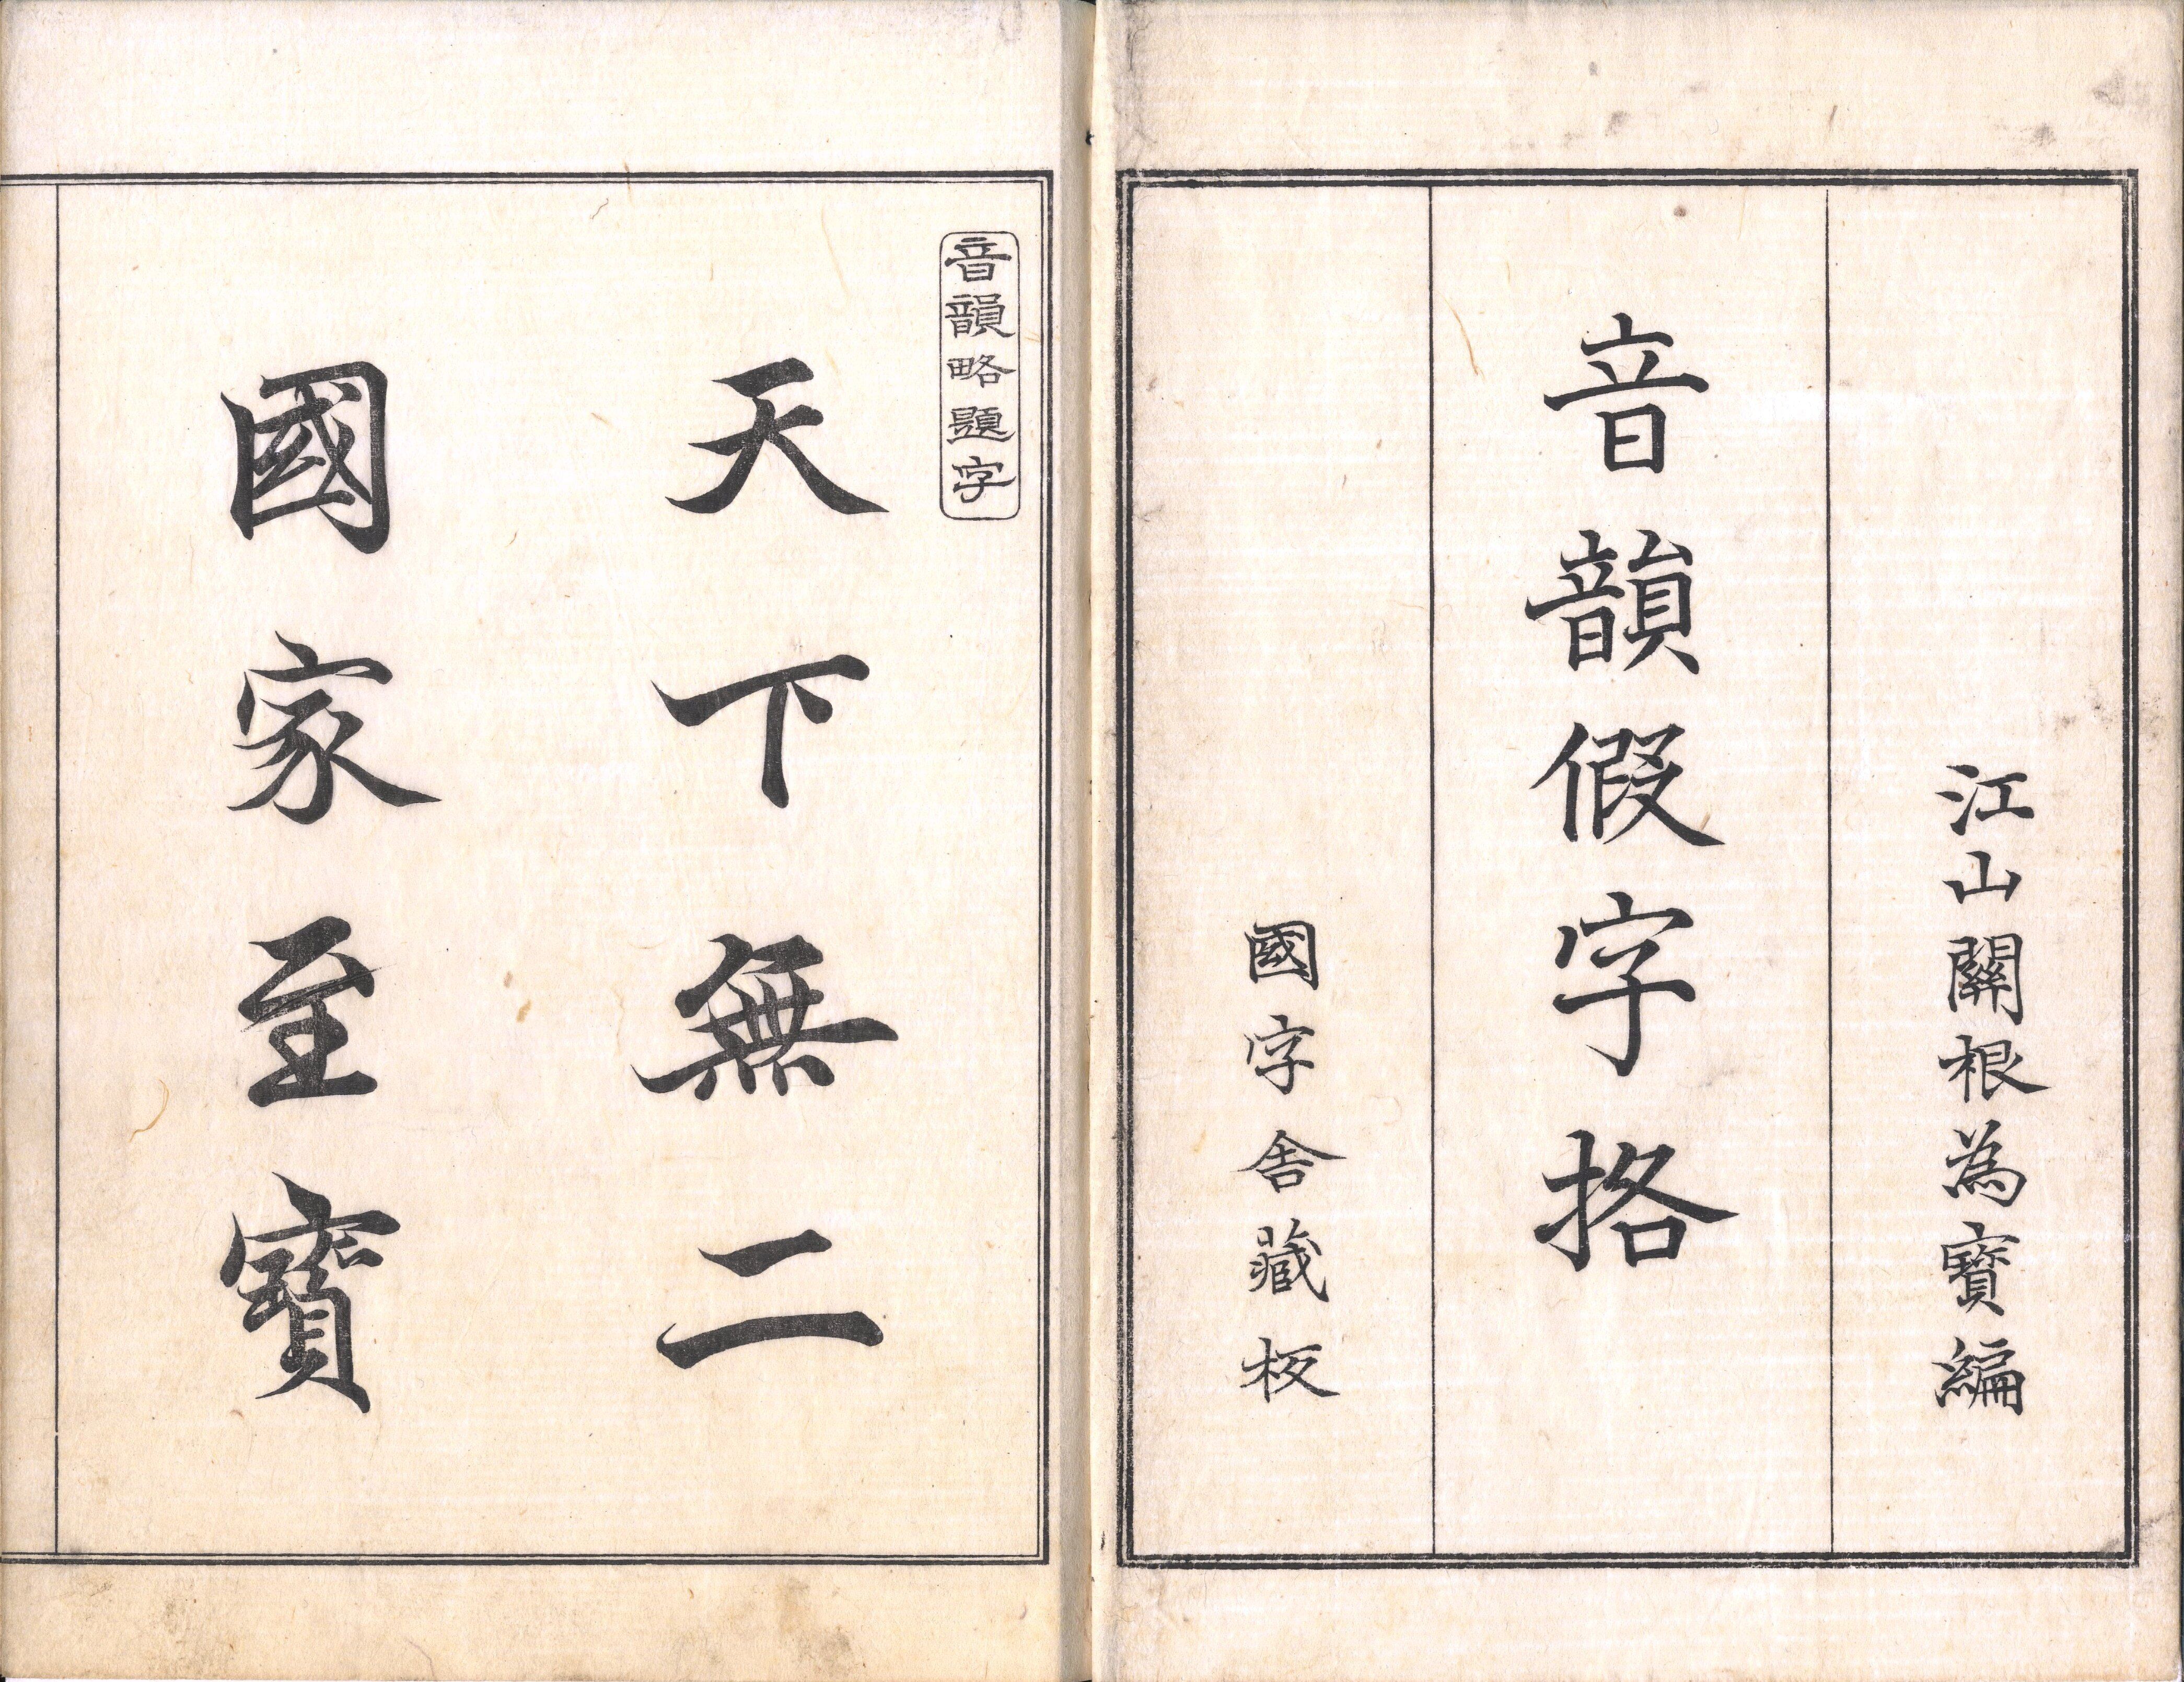 江山關根為寶編
音韻假字格
國字舍藏板
音韻略題字
天下無二
國家至寶